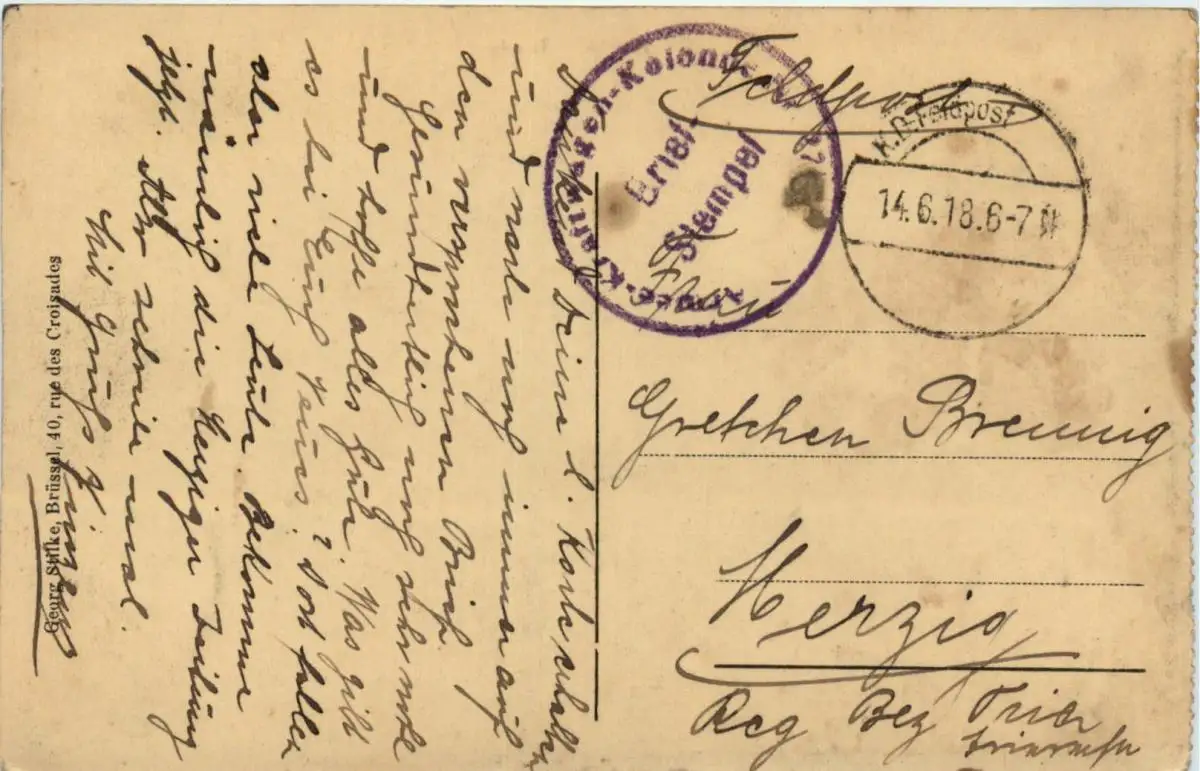 Feldpost
Brief-
Stempel
K.D. Feldpost
14.6.18.6-7 N
Frau
Gretchen Brennig
Merzig
Reg Bez Trier
Deine l. Karte erhalten
und warte noch immer auf
den versprochenen Brief.
Gesundheitlich noch sehr
und hoffe alles Gute. Was gibt
es bei Euch neues? Dort fallen
aber viele Leute. Bekomme
nämlich die Merziger Zeitung
jetzt. Aber schreibe mal.
Mit Gruß
Georg Stilke, Brüssel, 40, rue des Croisades